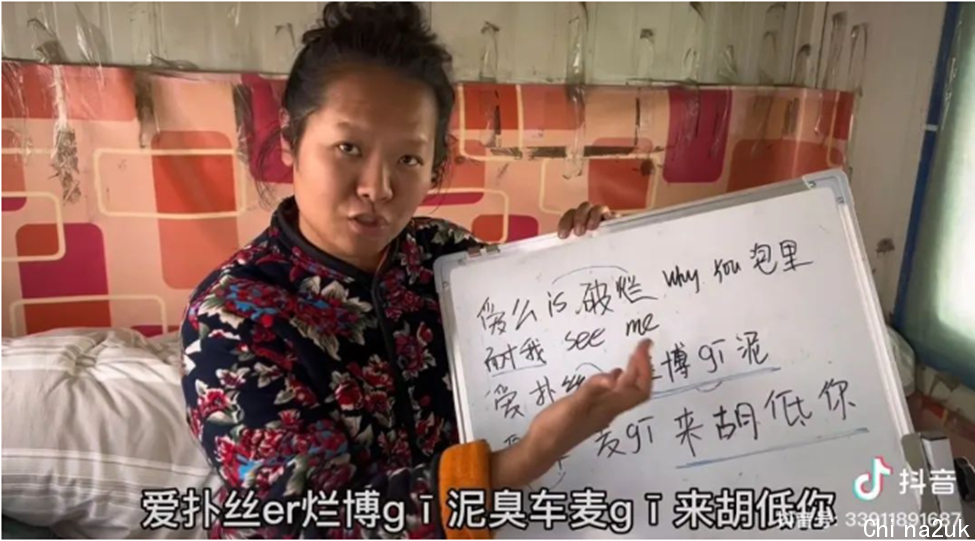 爱么 is 破烂 why you 包里
耐我 see me
爱扑丝 博gī泥
麦gī 来胡低你
爱扑丝er烂博gī泥臭车麦gī来胡低你
抖音
抖音号: 33911891687
Chi na2uk